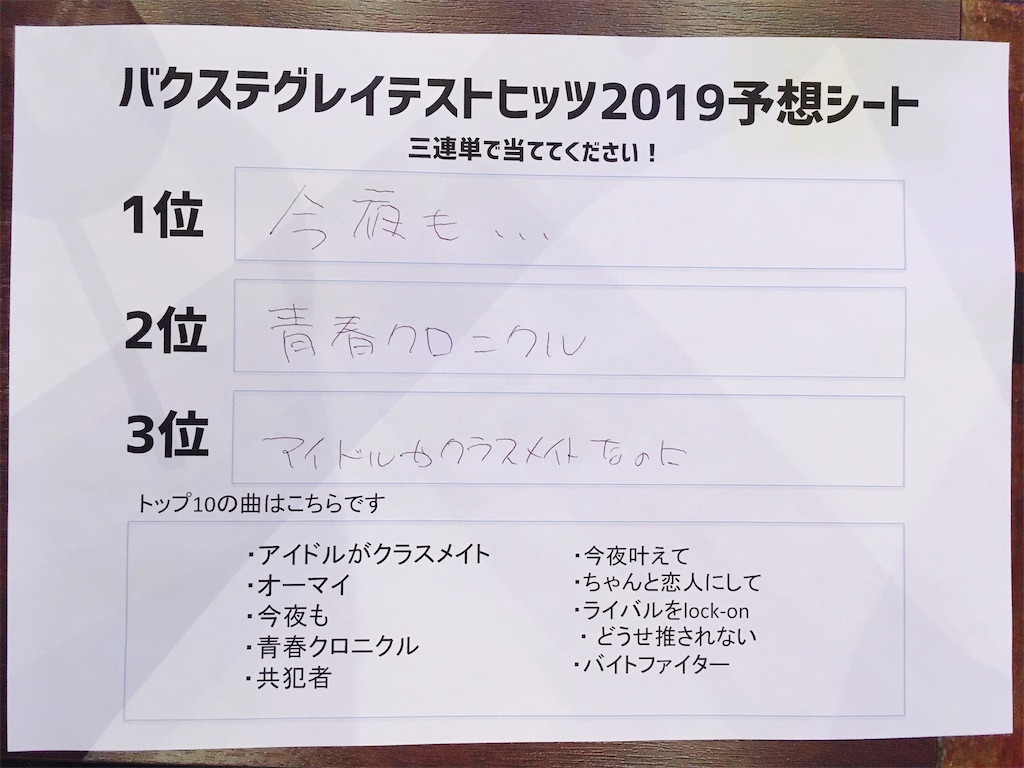 バクステグレイテストヒッツ2019予想シート
三連単で当ててください！
1位 今夜も、、、
2位 青春クロニクル
3位 アイドルやクラスメイトなのに
トップ10の曲はこちらです
・アイドルがクラスメイト
・オーマイ
・今夜も
・青春クロニクル
・共犯者
・今夜叶えて
・ちゃんと恋人にして
・ライバルをlock-on
・どうせ推されない
・バイトファイター